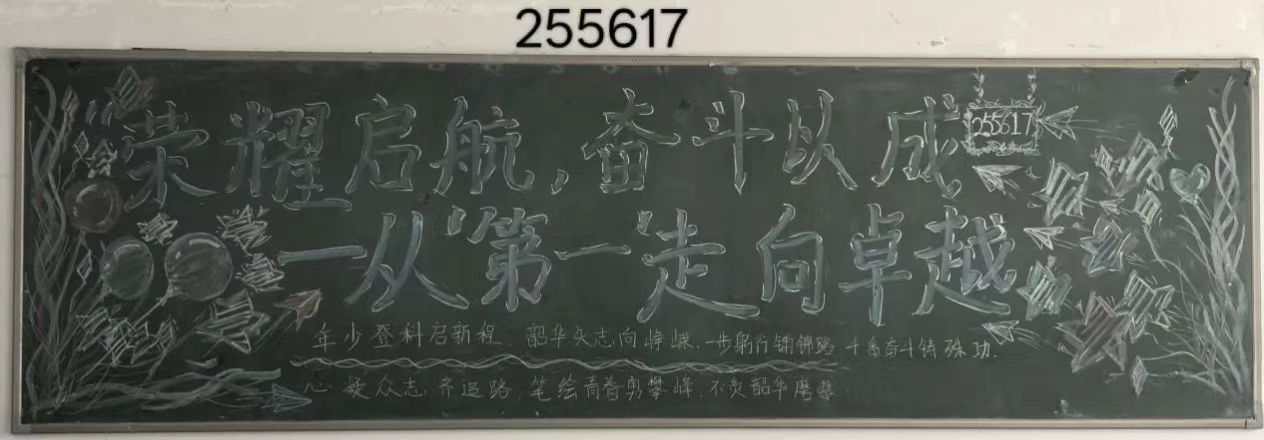 255617
荣耀启航,奋斗以成
255617
一从"第一"走向卓越
年少登科启新程 韶华矢志向峥嵘 一步躬行铺锦路 十番奋斗铸殊功.
心 众志 齐追路 笔绘青春勇攀峰 不负韶华磨